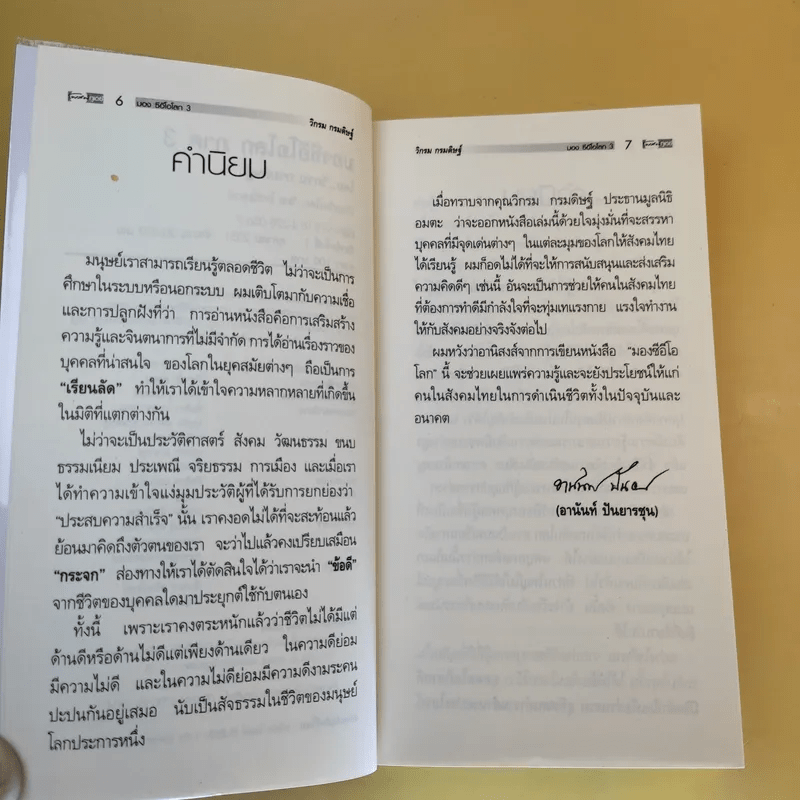 6
มอง ซีอีโอโลก 3
วิกรม กรมดิษฐ์
คำนิยม
มนุษย์เราสามารถเรียนรู้ตลอดชีวิต ไม่ว่าจะเป็นการ
ศึกษาในระบบหรือนอกระบบ ผมเติบโตมากับความเชื่อ
และการปลูกฝังที่ว่า การอ่านหนังสือคือการเสริมสร้าง
ความรู้และจินตนาการที่ไม่มีจำกัด การได้อ่านเรื่องราวของ
บุคคลที่น่าสนใจ ของโลกในยุคสมัยต่างๆ ถือเป็นการ
“เรียนลัด” ทำให้เราได้เข้าใจความหลากหลายที่เกิดขึ้น
ในมิติที่แตกต่างกัน
ไม่ว่าจะเป็นประวัติศาสตร์ สังคม วัฒนธรรม ขนบ
ธรรมเนียม ประเพณี จริยธรรม การเมือง และเมื่อเรา
ได้ทำความเข้าใจแง่มุมประวัติผู้ที่ได้รับการยกย่องว่า
“ประสบความสำเร็จ” นั้น เราคงอดไม่ได้ที่จะสะท้อนแล้ว
ย้อนมาคิดถึงตัวตนของเรา จะว่าไปแล้วคงเปรียบเสมือน
“กระจก” ส่องทางให้เราได้ตัดสินใจได้ว่าเราจะนำ “ข้อดี”
จากชีวิตของบุคคลใดมาประยุกต์ใช้กับตนเอง
ทั้งนี้ เพราะเราคงตระหนักแล้วว่าชีวิตไม่ได้มีแต่
ด้านดีหรือด้านไม่ดีแต่เพียงด้านเดียว ในความดีย่อม
มีความไม่ดี และในความไม่ดีย่อมมีความดีงามระคน
ปะปนกันอยู่เสมอ นับเป็นสัจธรรมในชีวิตของมนุษย์
โลกประการหนึ่ง
วิกรม กรมดิษฐ์
มอง ซีอีโอโลก 3
7
เมื่อทราบจากคุณวิกรม กรมดิษฐ์ ประธานมูลนิธิ
อมตะ ว่าจะออกหนังสือเล่มนี้ด้วยใจมุ่งมั่นที่จะสรรหา
บุคคลที่มีจุดเด่นต่างๆ ในแต่ละมุมของโลกให้สังคมไทย
ได้เรียนรู้ ผมก็อดไม่ได้ที่จะให้การสนับสนุนและส่งเสริม
ความคิดดีๆ เช่นนี้ อันจะเป็นการช่วยให้คนในสังคมไทย
ที่ต้องการทำดีมีกำลังใจที่จะทุ่มเทแรงกาย แรงใจทำงาน
ให้กับสังคมอย่างจริงจังต่อไป
ผมหวังว่าอานิสงส์จากการเขียนหนังสือ “มองซีอีโอ
โลก” นี้ จะช่วยเผยแพร่ความรู้และจะยังประโยชน์ให้แก่
คนในสังคมไทยในการดำเนินชีวิตทั้งในปัจจุบันและ
อนาคต
(อานันท์ ปันยารชุน)